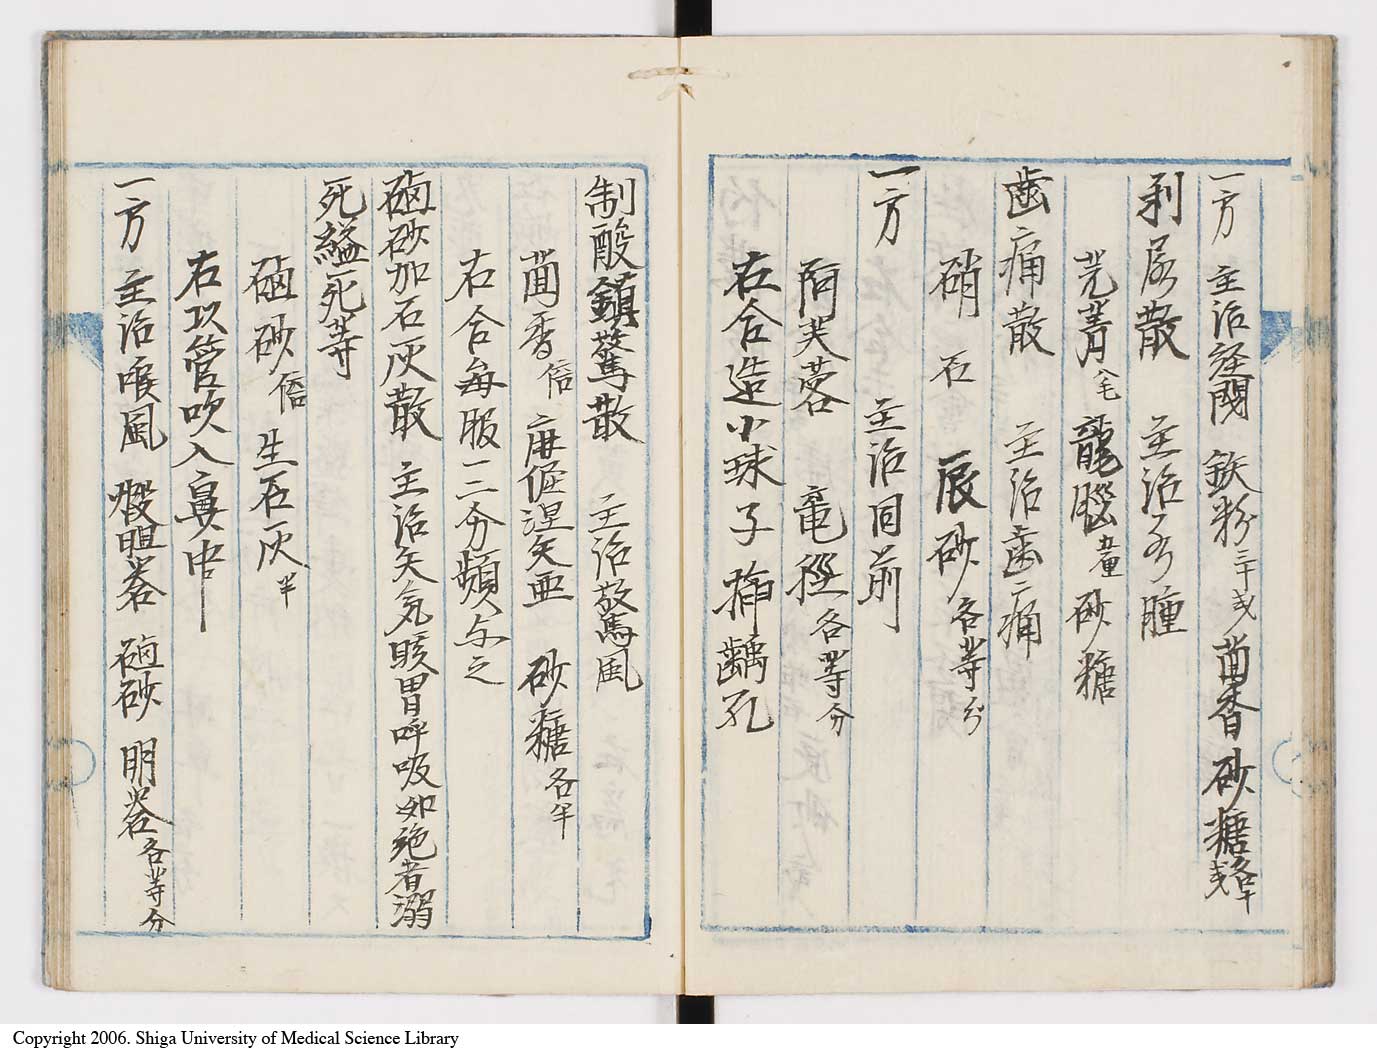 一方 主治経閉 鉄粉三十戔 茴香 砂糖各十戔
利尿散 主治水腫
芫菁八毛 龍脳 砂糖
歯痛散 主治歯痛
硝石 辰砂各等分
一方 主治同前
阿芙蓉 竜 各等分
右合造小球子挿齲孔
制酸鎮驚散 主治驚風
茴香倍 麻倔涅矢亜 砂糖各半
右合毎服二分頻々与之
磠砂加石灰散 主治矢気咳冒呼吸如絶者溺
死縊死等
磠砂倍 生石灰半
右以管吹入鼻中
一方 主治喉風 煆胆礬 磠砂 明礬各等分
Copyright 2006. Shiga University of Medical Science Library